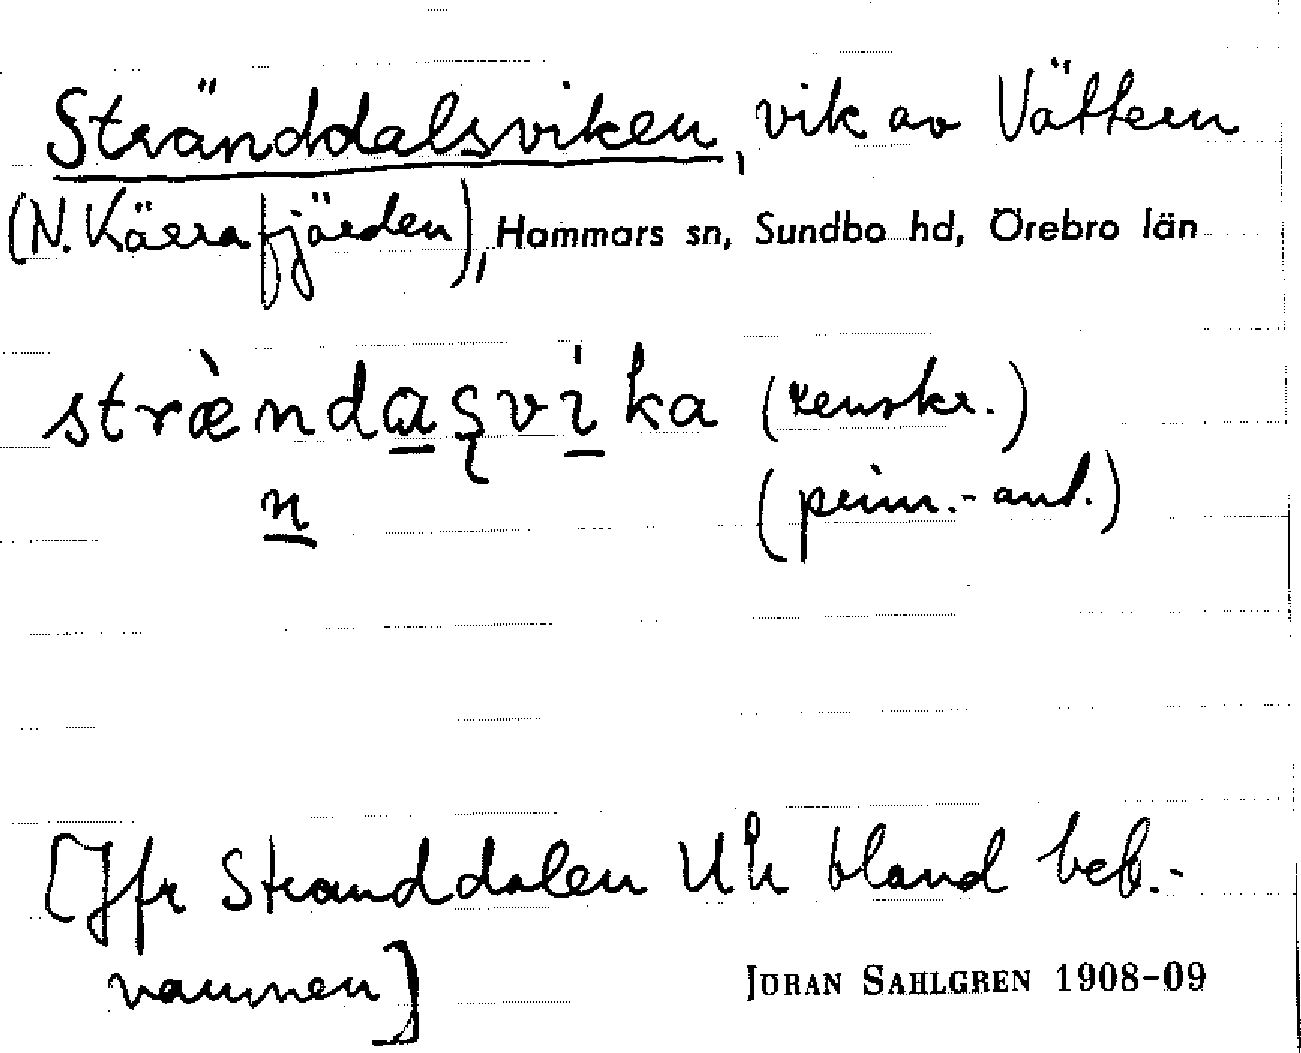 Stränddalsviken, vik av Vättern
(N. Kärrafjärden), Hammars sn, Sundbo hd, Örebro län
stræ̀nda̲şvi̲ka (renskr.)
n̲ (prim.-ant.)
[Jfr Stranddalen Uh bland beb.-
namnen]
JÖRAN SAHLGREN 1908-09